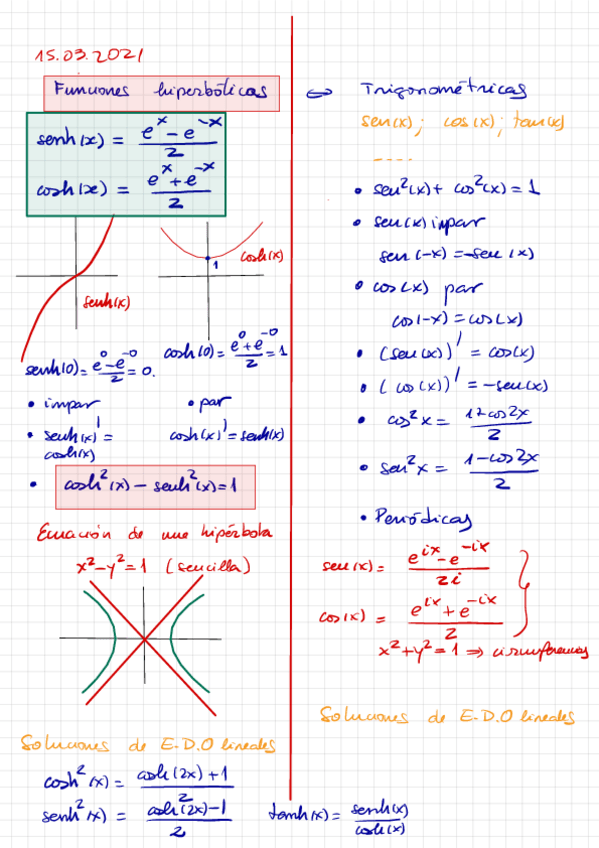 15.03.2021
Funciones hiperbólicas
senh(x) = e^x - e^-x / 2
cosh(x) = e^x + e^-x / 2
senh(x)
cosh(x)
1
senh(0) = e^0 - e^-0 / 2 = 0.
cosh(0) = e^0 + e^-0 / 2 = 1
• impar
• par
• senh(x)' = cosh(x)
cosh(x)' = senh(x)
• cosh²(x) - senh²(x) = 1
Ecuación de una hipérbola
x² - y² = 1 (sencilla)
Soluciones de E.D.O lineales
cosh²(x) = cosh(2x) + 1 / 2
senh²(x) = cosh(2x) - 1 / 2
tanh(x) = senh(x) / cosh(x)
⇔ Trigonométricas
sen(x); cos(x); tan(x)
----
• sen²(x) + cos²(x) = 1
• sen(x) impar
sen(-x) = -sen(x)
• cos(x) par
cos(-x) = cos(x)
• (sen(x))' = cos(x)
• (cos(x))' = -sen(x)
• cos²x = 1 + cos2x / 2
• sen²x = 1 - cos2x / 2
• Periódicas
sen(x) = e^ix - e^-ix / 2i
cos(x) = e^ix + e^-ix / 2
x² + y² = 1 ⇒ circunferencias
Soluciones de E.D.O lineales